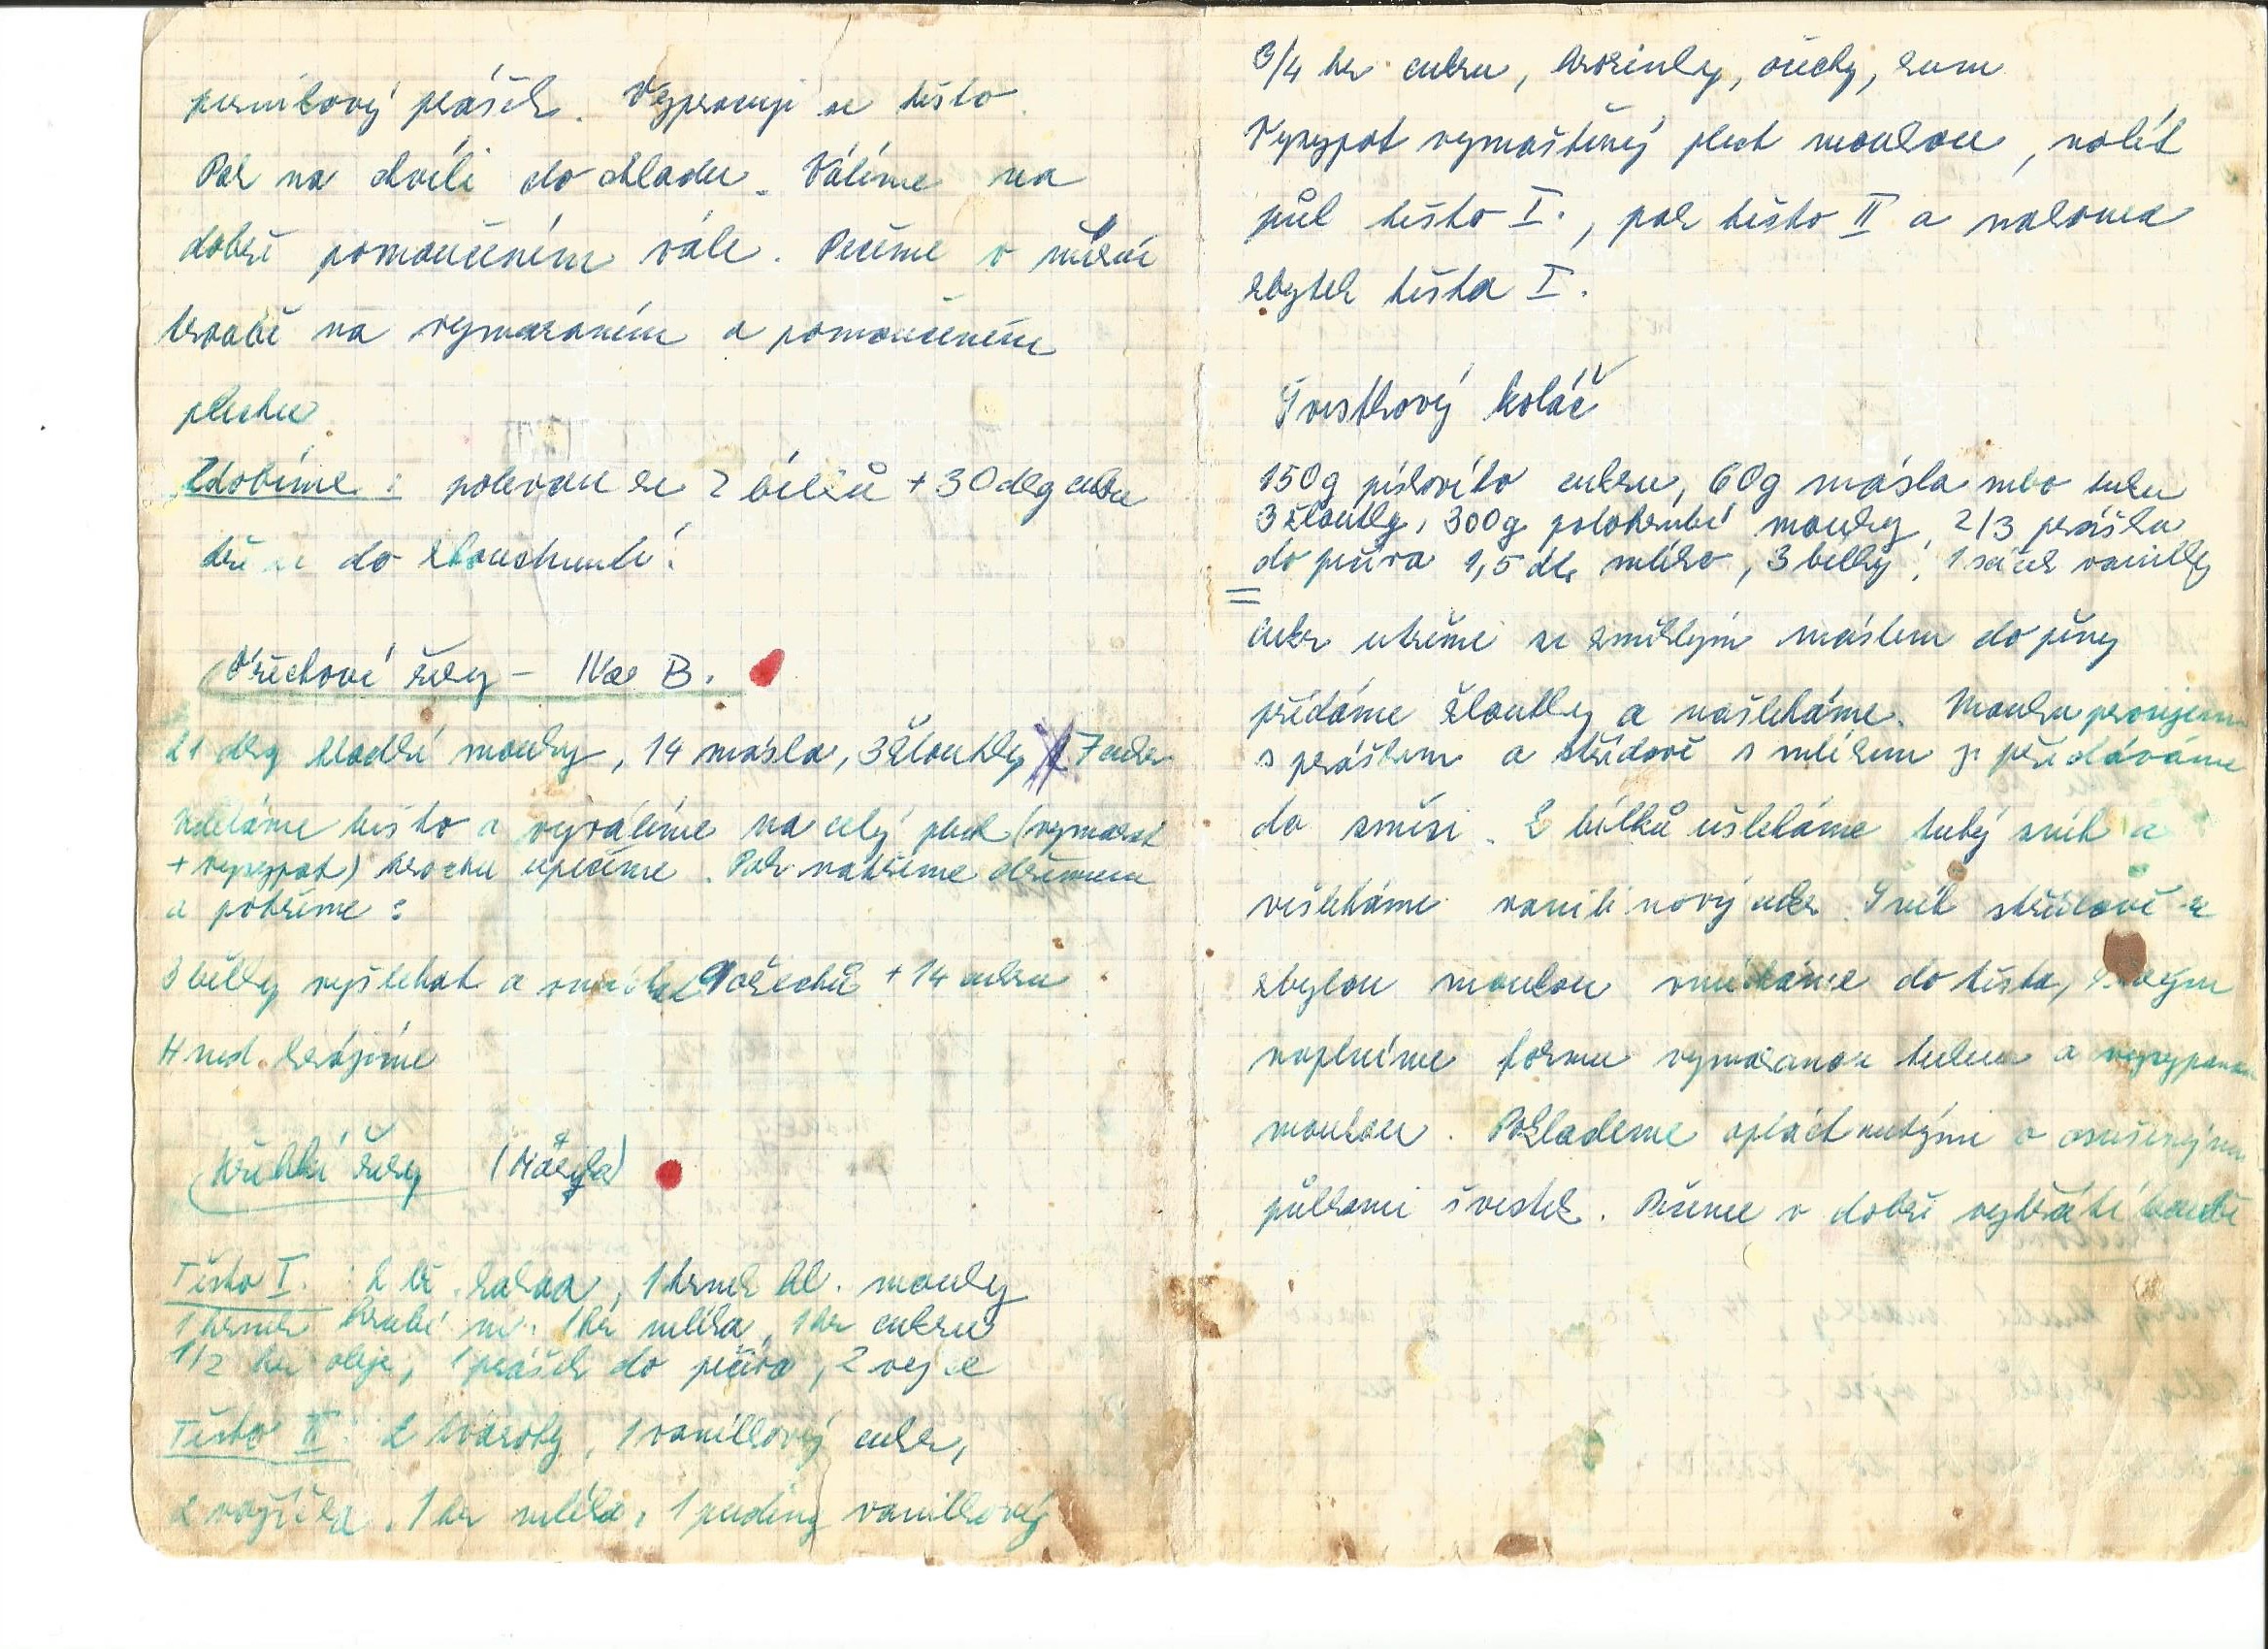 perníkový prášek. Vypracuje se těsto.
Pak na chvíli do chladu. Válíme na
dobře pomoučeném vále. Pečeme v mírné
troubě na vymazaném a pomoučeném
plechu
Zdobíme: polevou ze 2 bílků + 30 dkg cukru
tře se do zhoustnutí!
Ořechové řezy - Iva B.
21 dkg hladké mouky, 14 másla, 3 žloutky, 7 cukr
Uděláme těsto a vyválíme na celý plech (vymazat
+ vysypat) trochu upečeme. Pak natřeme džemem
a potřeme:
3 bílky vyšlehat a vmíchat 9 ořechů + 14 cukru
Hned krájíme
Křehké řezy (Mařka)
Těsto I.: 2 lž. kakaa, 1 hrnek hl. mouky
1 hrnek hrubé m. 1 hr mléka, 1 hr cukru
1/2 hr oleje, 1 prášek do pečiva, 2 vejce
Těsto II: 2 tvarohy, 1 vanilkový cukr,
2 vajíčka, 1 hr mléka, 1 puding vanilkový
3/4 hr cukru, hrozinky, ořechy, rum
Vysypat vymaštěný plech moukou, nalít
půl těsto I., pak těsto II a nakonec
zbytek těsta I.
Švestkový koláč
150g pískového cukru, 60g másla nebo tuku
3 žloutky, 300g polohrubé mouky, 2/3 prášku
do pečiva 1,5 dl mléko, 3 bílky, 1 sáček vanilky
=
Cukr utřeme se změklým máslem do pěny
přidáme žloutky a našleháme. Mouku prosijeme
s práškem a střídavě s mlékem ji přidáváme
do směsi. Z bílků ušleháme tuhý sníh a
všleháme vanilinový cukr. Sníh střídavě se
zbylou moukou vmícháme do těsta,
naplníme formu vymazanou tukem a vysypanou
moukou. Poklademe opláchnutými a osušenými
půlkami švestek. Pečeme v dobře vyhřáté troubě